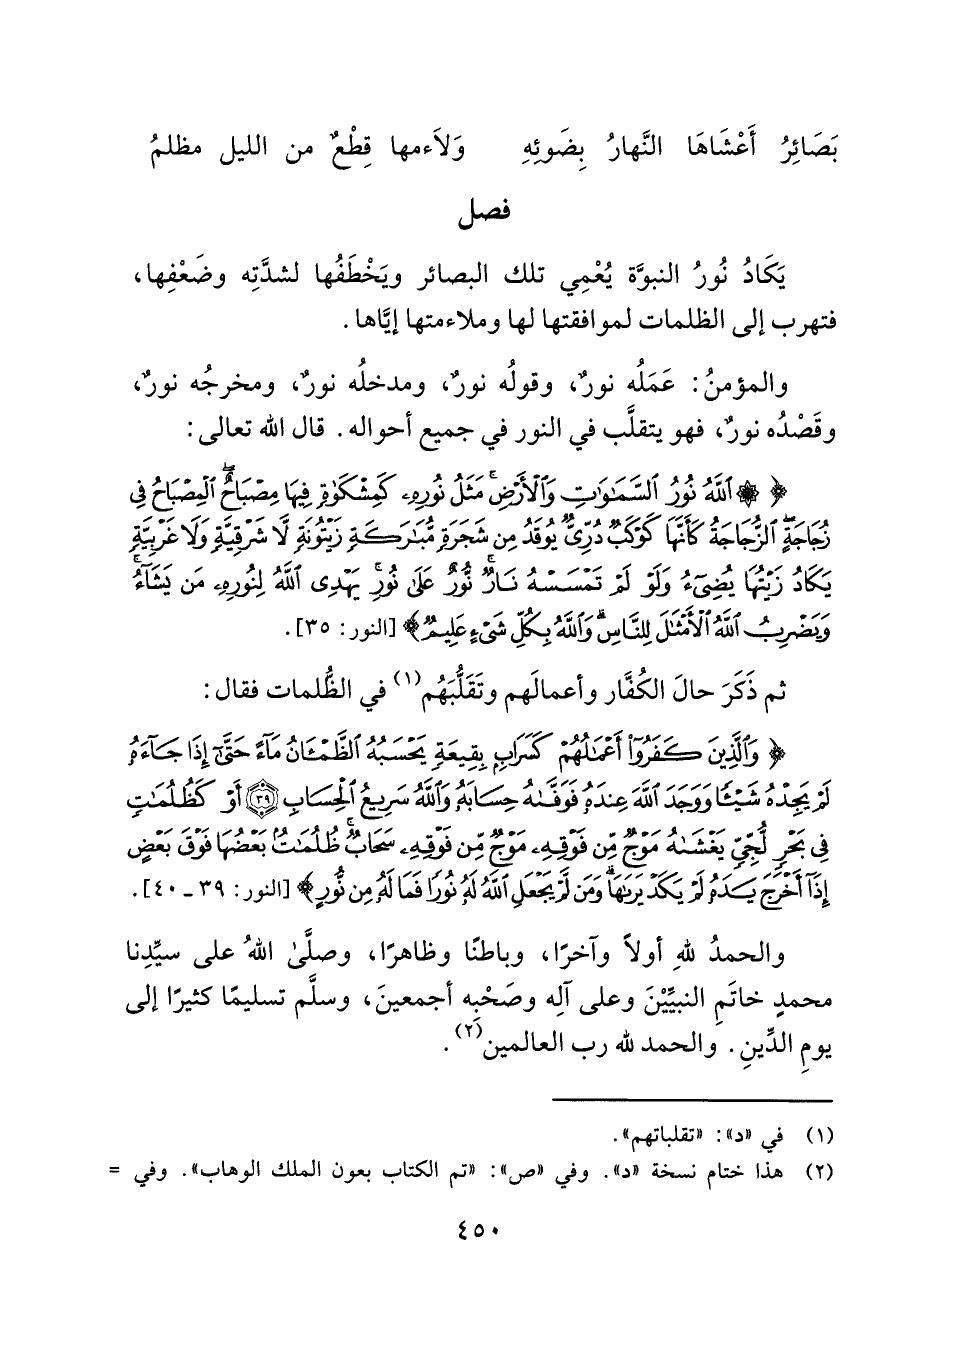 بَصَائِرُ أَعْشَاهَا النَّهارُ بِضَوئِهِ وَلاَءمها قِطْعٌ من الليل مظلمُ
فصل
يَكَادُ نُورُ النبوَّة يُعْمِي تلك البصائر ويَخْطَفُها لشدَّتِه وضَعْفِها،
فتهرب إلى الظلمات لموافقتها لها وملاءمتها إيَّاها.
والمؤمنُ: عَمَلُه نورٌ، وقولُه نورٌ، ومدخلُه نورٌ، ومخرجُه نورٌ،
وقَصْدُه نورٌ، فهو يتقلَّب في النور في جميع أحواله. قال الله تعالى:
﴿ ۞ ٱللَّهُ نُورُ ٱلسَّمَٰوَٰتِ وَٱلْأَرْضِۚ مَثَلُ نُورِهِۦ كَمِشْكَوٰةٍ فِيهَا مِصْبَاحٌۖ ٱلْمِصْبَاحُ فِي
زُجَاجَةٍۖ ٱلزُّجَاجَةُ كَأَنَّهَا كَوْكَبٌ دُرِّيٌّ يُوقَدُ مِن شَجَرَةٍ مُّبَٰرَكَةٍ زَيْتُونَةٍ لَّا شَرْقِيَّةٍ وَلَا غَرْبِيَّةٍ
يَكَادُ زَيْتُهَا يُضِيٓءُ وَلَوْ لَمْ تَمْسَسْهُ نَارٌۚ نُّورٌ عَلَىٰ نُورٍۚ يَهْدِي ٱللَّهُ لِنُورِهِۦ مَن يَشَآءُۚ
وَيَضْرِبُ ٱللَّهُ ٱلْأَمْثَٰلَ لِلنَّاسِۗ وَٱللَّهُ بِكُلِّ شَيْءٍ عَلِيمٌ﴾ [النور: ٣٥].
ثم ذَكَرَ حالَ الكُفَّار وأعمالَهم وتَقَلُّبَهُم(١) في الظُّلمات فقال:
﴿ وَٱلَّذِينَ كَفَرُوٓا۟ أَعْمَٰلُهُمْ كَسَرَابٍۭ بِقِيعَةٍ يَحْسَبُهُ ٱلظَّمْـَٔانُ مَآءً حَتَّىٰٓ إِذَا جَآءَهُۥ
لَمْ يَجِدْهُ شَيْـًٔا وَوَجَدَ ٱللَّهَ عِندَهُۥ فَوَفَّىٰهُ حِسَابَهُۥۗ وَٱللَّهُ سَرِيعُ ٱلْحِسَابِ ٣٩ أَوْ كَظُلُمَٰتٍ
فِي بَحْرٍ لُّجِّيٍّ يَغْشَىٰهُ مَوْجٌ مِّن فَوْقِهِۦ مَوْجٌ مِّن فَوْقِهِۦ سَحَابٌۚ ظُلُمَٰتٌۢ بَعْضُهَا فَوْقَ بَعْضٍ
إِذَآ أَخْرَجَ يَدَهُۥ لَمْ يَكَدْ يَرَىٰهَاۗ وَمَن لَّمْ يَجْعَلِ ٱللَّهُ لَهُۥ نُورًا فَمَا لَهُۥ مِن نُّورٍ﴾ [النور: ٣٩ ـ ٤٠].
والحمدُ للهِ أولاً وآخرًا، وباطنًا وظاهرًا، وصلَّىٰ اللهُ على سيِّدِنا
محمدٍ خاتَمِ النبيِّيْنَ وعلى آلِه وصَحْبِه أجمعينَ، وسلَّم تسليمًا كثيرًا إلى
يومِ الدِّينِ. والحمد لله رب العالمين(٢).
(١) في «د»: «تقلباتهم».
(٢) هذا ختام نسخة «د». وفي «ص»: «تم الكتاب بعون الملك الوهاب». وفي =
٤٥٠